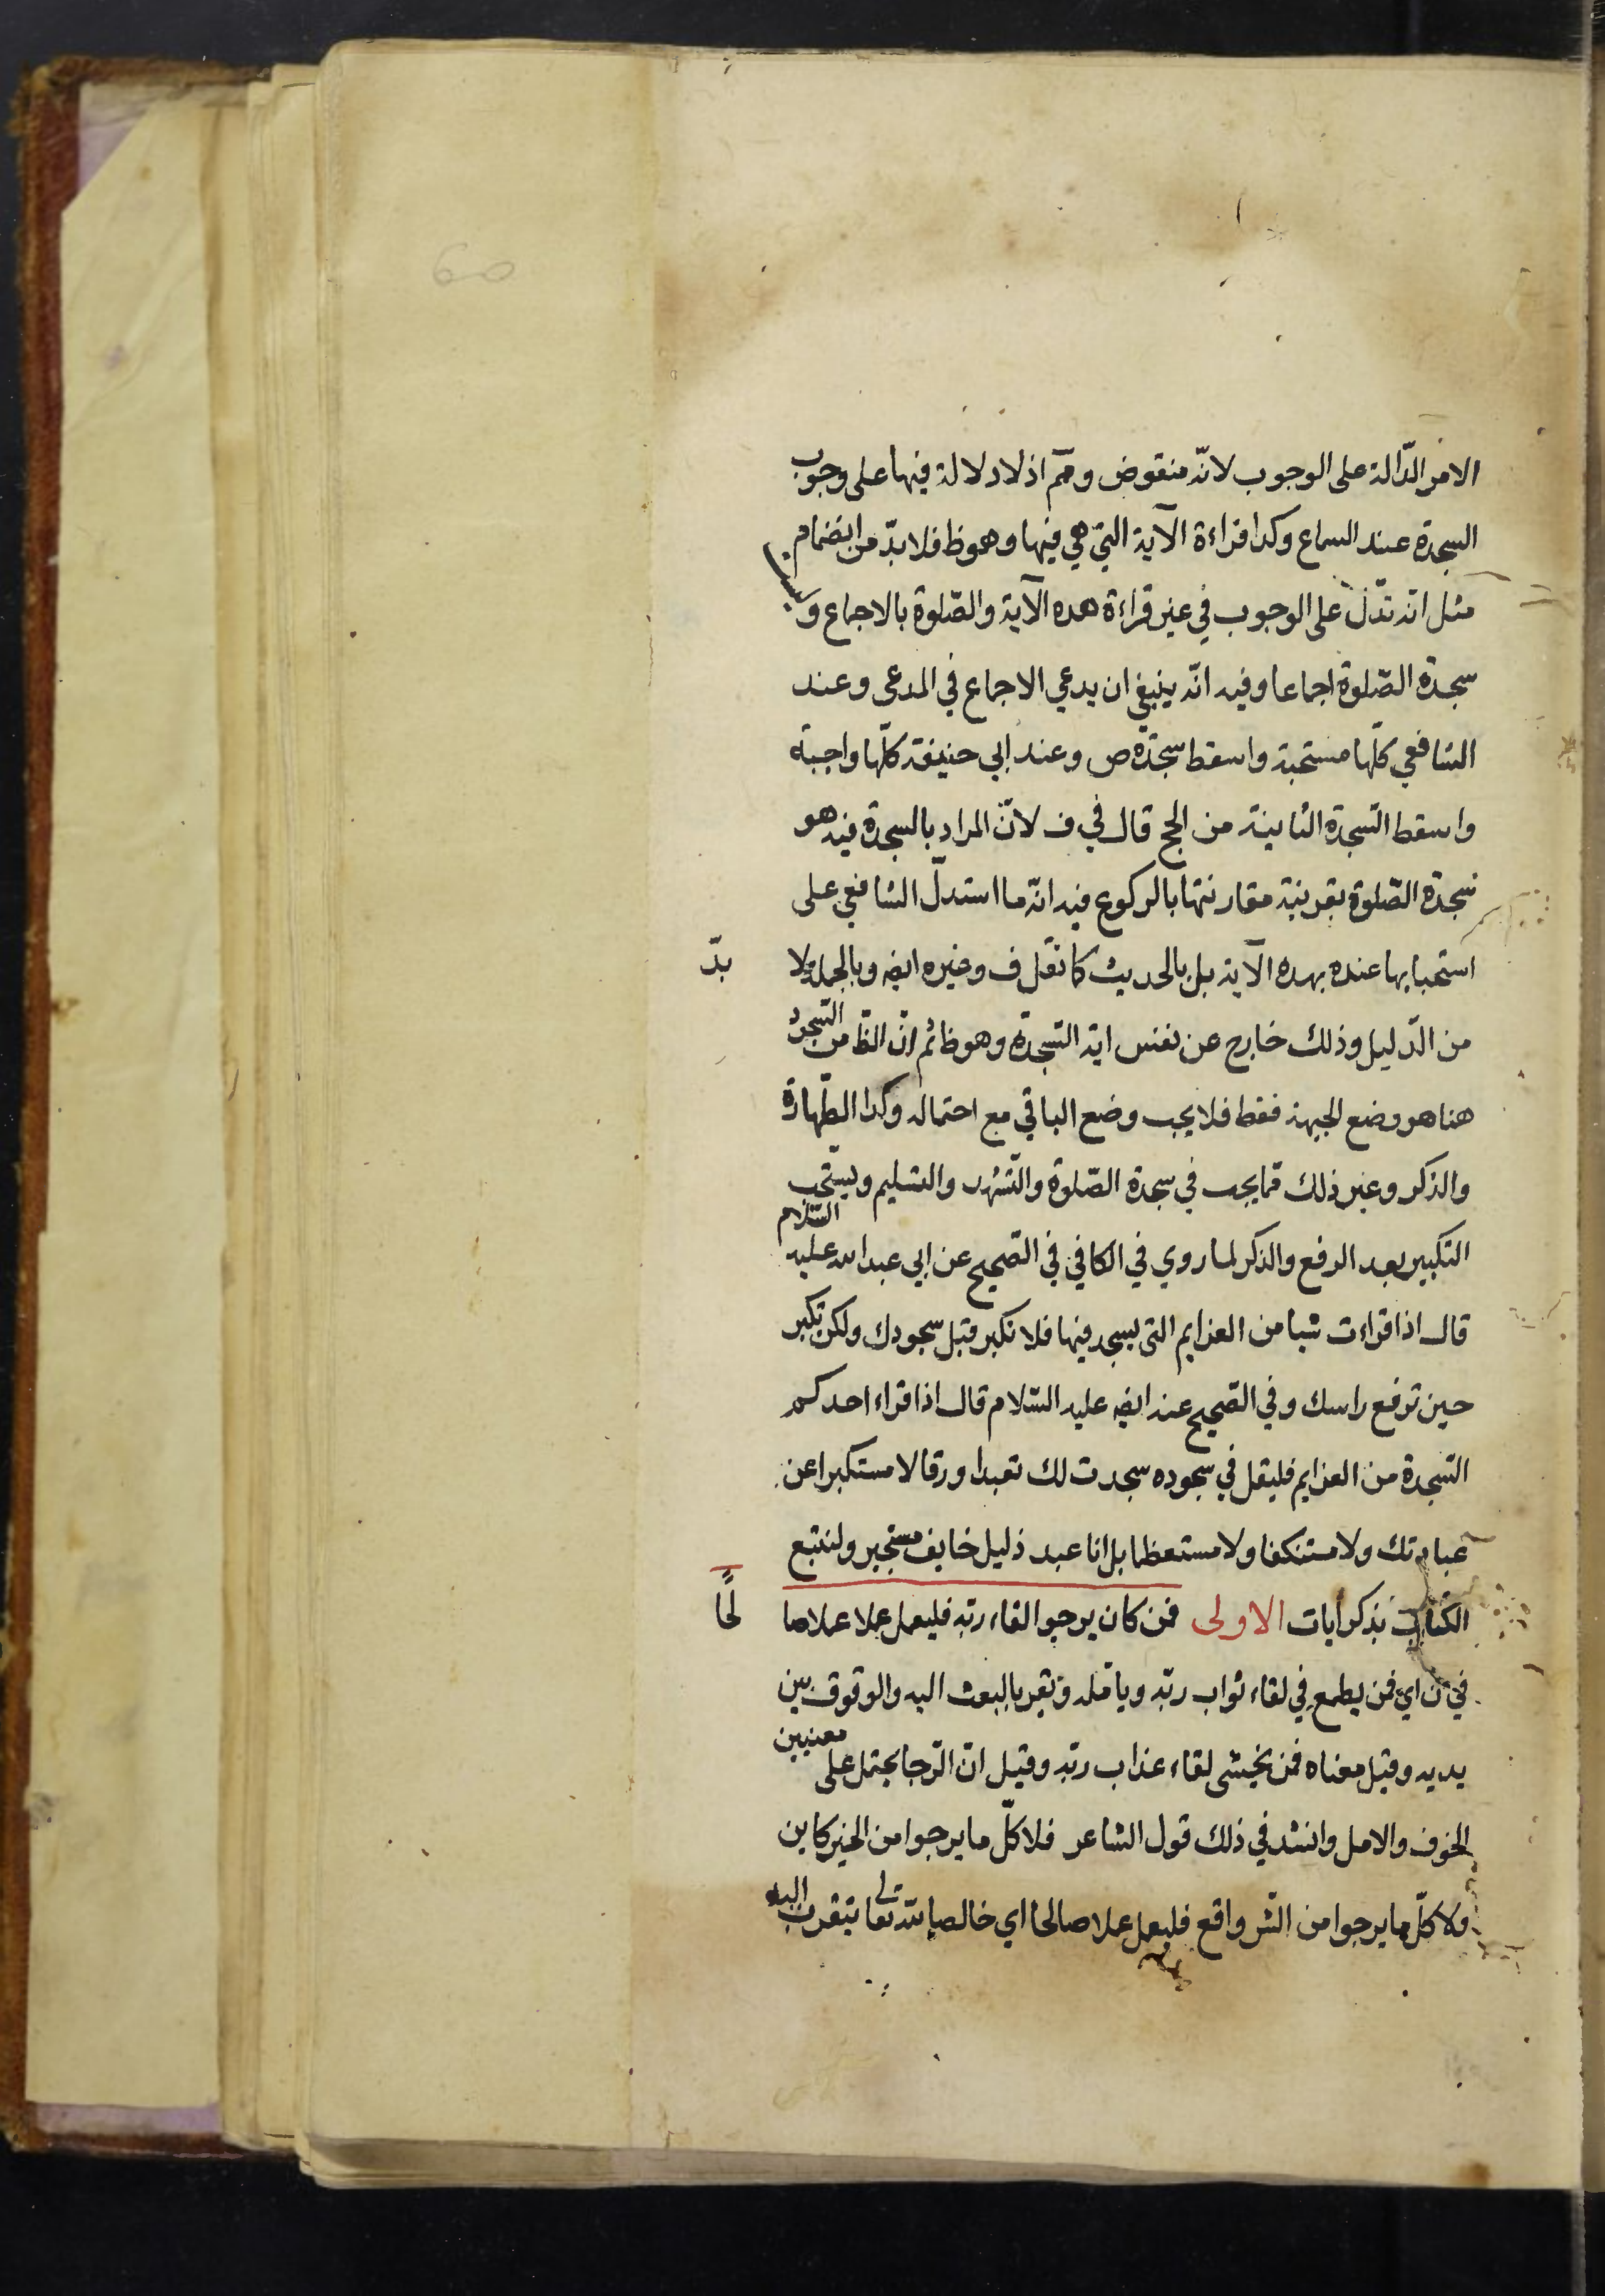 الامر الدّالة على الوجوب لانّه منقوض ومم اذ لا دلالة فيها على وجوب
السجدة عند السماع وكذا قراءة الآية التي هي فيها وهو ظ فلا بدّ من انضمام
مثل انه تدل على الوجوب في غير قراءة هذه الآية والصّلوة بالاجماع و
سجدة الصّلوة اجماعا وفيه انّه ينبغي ان يدعي الاجماع في المدعى وعند
الشافعي كلّها مستحبة واسقط سجدة ص وعند ابي حنيفة كلّها واجبة
واسقط السّجدة الثانية من الحج قال في ف لانّ المراد بالسجدة فيه هو
سجدة الصّلوة بقرينة مقارنتها بالركوع فيه انّه ما استدلّ الشافعي على
استحبابها عنده بهذه الآية بل بالحديث كما نقل ف وغيره ايضه وبالجملة لا بدّ
من الدّليل وذلك خارج عن نفس اية السّجدة وهو ظ ثم انّ الظّ من السّجود
هنا هو وضع الجبهة فقط فلا يجب وضع الباقي مع احتماله وكذا الطّهارة
والذكر وغير ذلك ممّا يجب في سجدة الصّلوة والتّشهد والتسليم ويستحب
التكبير بعد الرفع والذكر لما روي في الكافي في الصّحيح عن ابي عبد الله عليه السّلام
قال اذا قراءت شيا من العزايم التي يسجد فيها فلا تكبر قبل سجودك ولكن تكبر
حين ترفع راسك وفي الصّحيح عنه ايضه عليه السّلام قال اذا قراء احدكم
السّجدة من العزايم فليقل في سجوده سجدت لك تعبدا ورقا لا مستكبرا عن
عبادتك ولا مستنكفا ولا مستعظما بل انا عبد ذليل خايف مستجير ولنتبع
الكتاب بذكر ايات الاولى فمن كان يرجوا لقاء ربّه فليعمل عملا عملا صا لحًا
في ن اي فمن يطمع في لقاء ثواب ربّه ويامله ويقر بالبعث اليه والوقوف بين
يديه وقيل معناه فمن يخشى لقاء عذاب ربّه وقيل انّ الرّجا يحتمل على معنيين
الخوف والامل وانشد في ذلك قول الشاعر فلا كلّ ما يرجوا من الخير كاين
ولا كلّ ما يرجوا من الشّر واقع فليعمل عملا صالحا اي خالصا لله تعالى يتقرب اليه